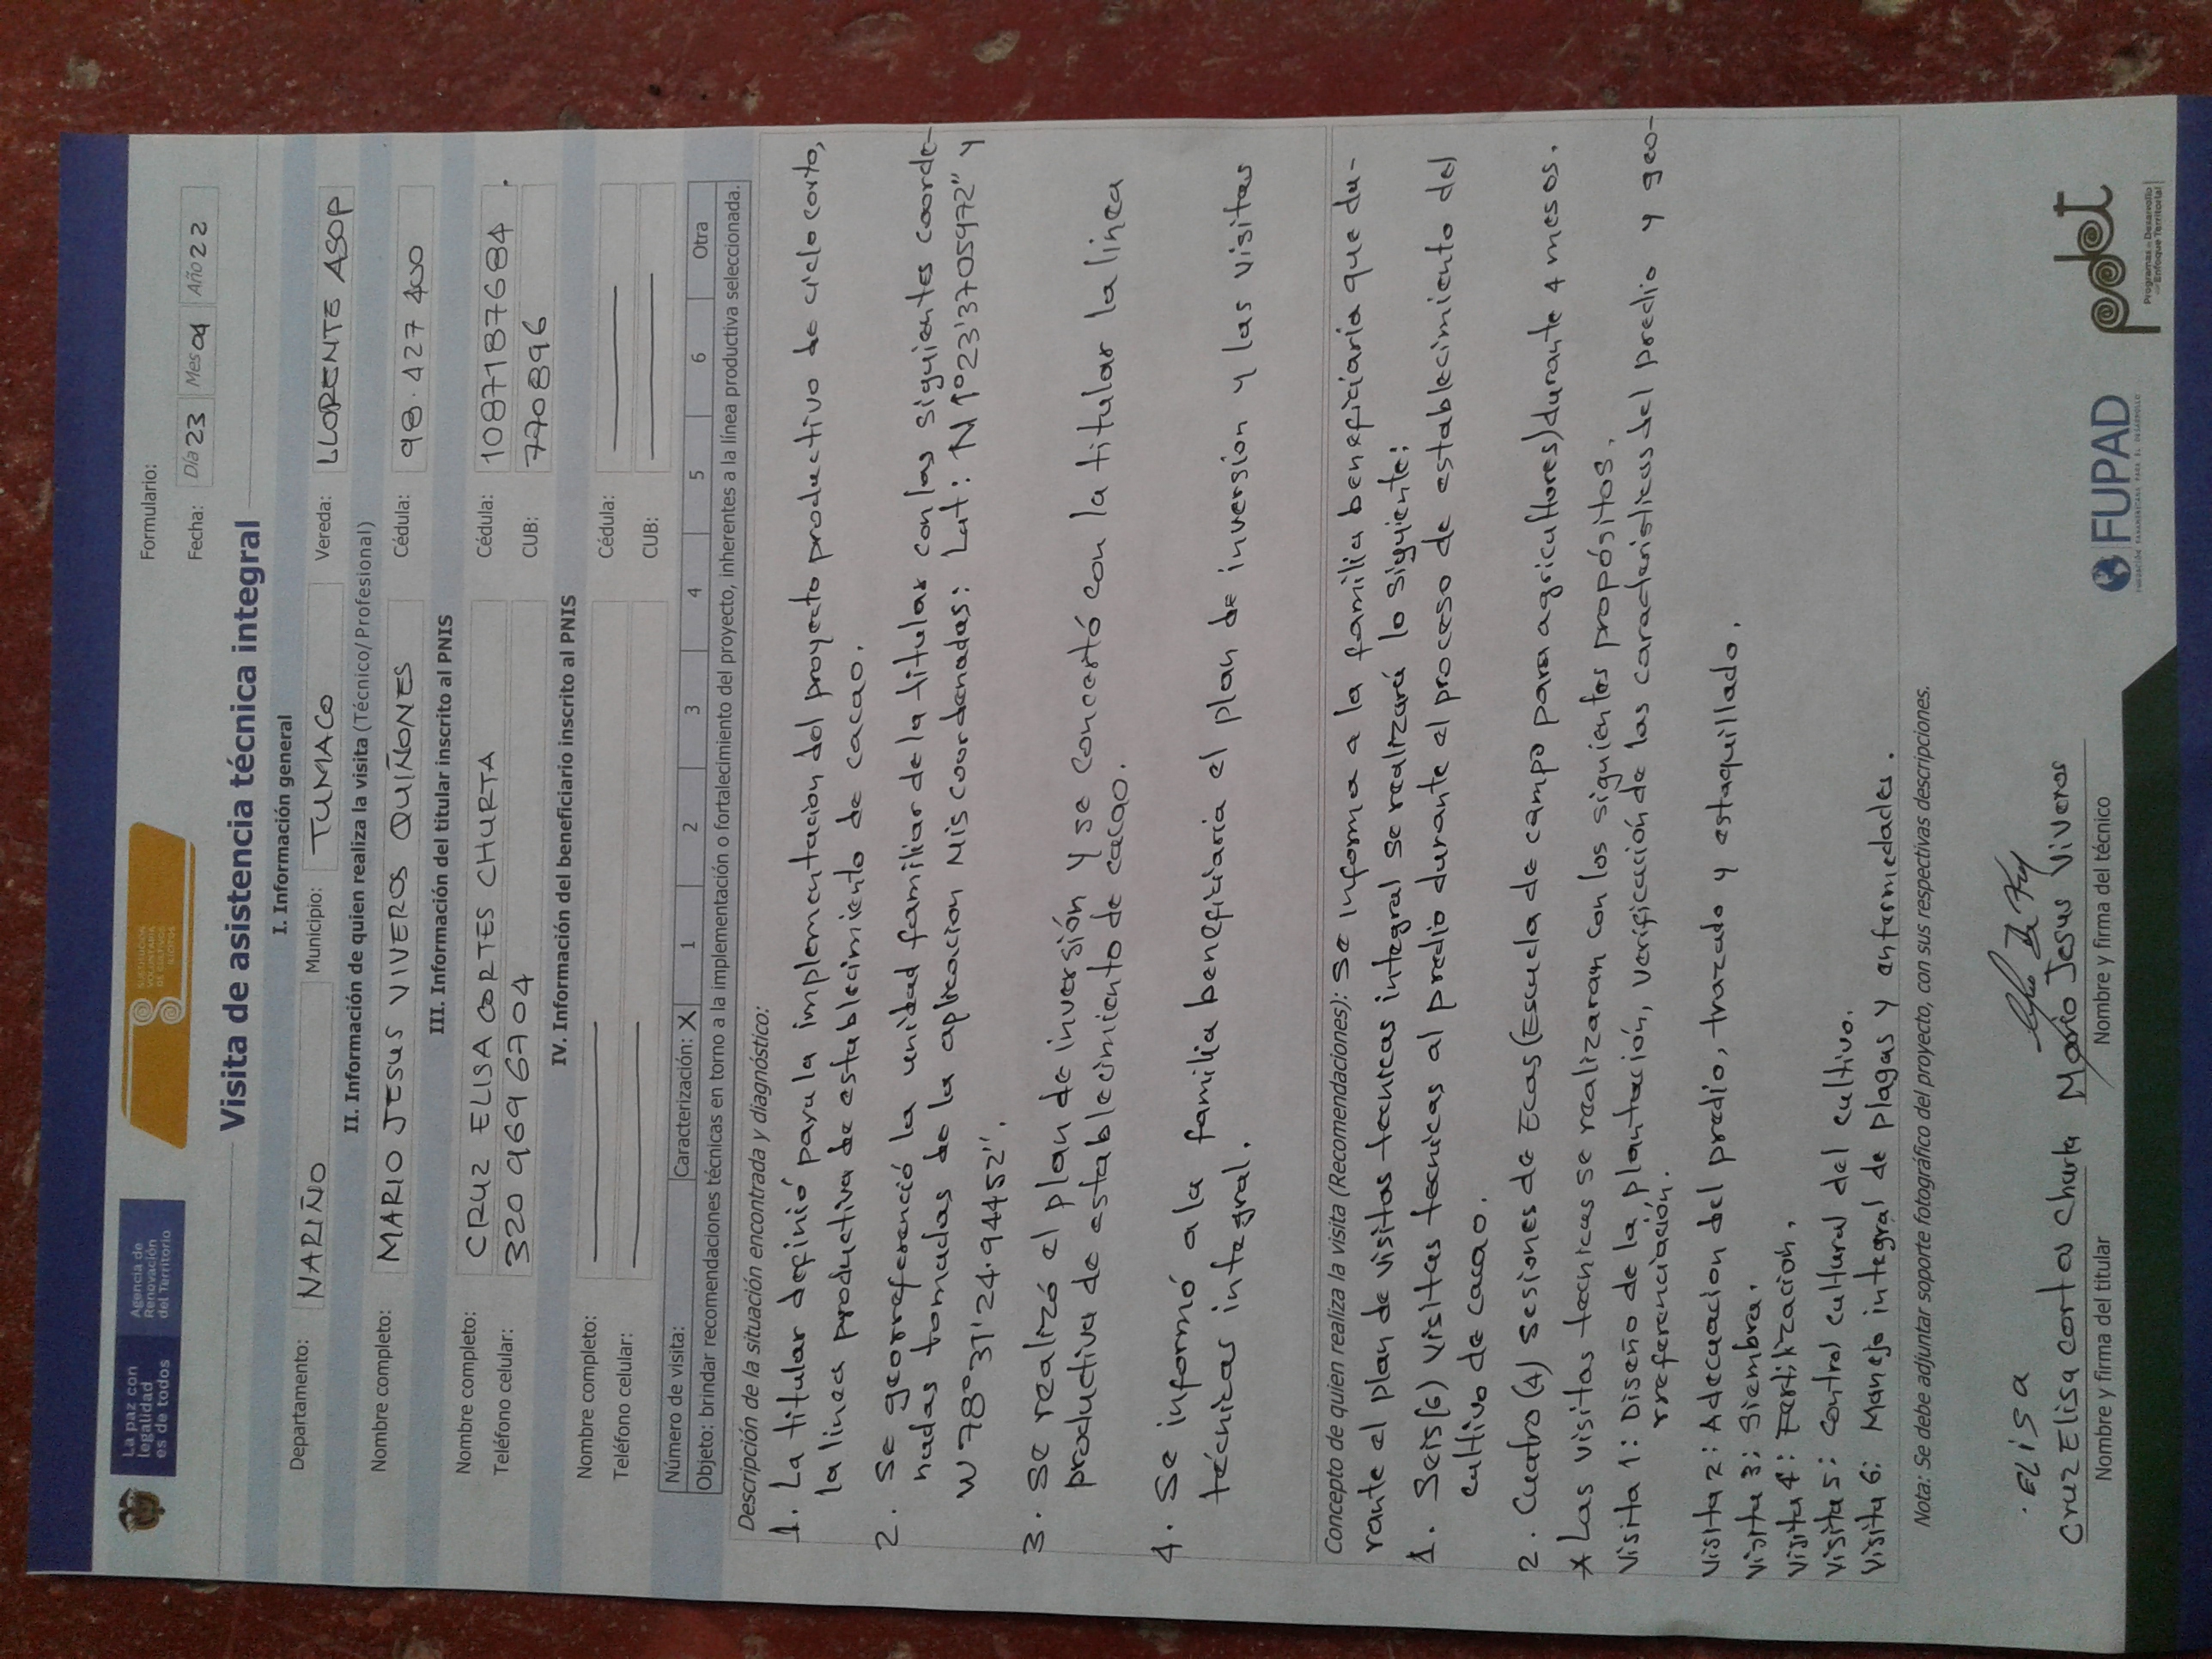 La paz con
legalidad
es de todos
Agencia de
Renovación
del Territorio
SUSTITUCIÓN
VOLUNTARIA
DE CULTIVOS
ILÍCITOS
Formulario:
Fecha: Día 23 Mes 04 Año 22
Visita de asistencia técnica integral
I. Información general
Departamento: NARIÑO Municipio: TUMACO Vereda: LLORENTE ASOP
II. Información de quien realiza la visita (Técnico/Profesional)
Nombre completo: MARIO JESUS VIVEROS QUIÑONES Cédula: 98.427400
III. Información del titular inscrito al PNIS
Nombre completo: CRUZ ELISA CORTES CHURTA Cédula: 1087187684.
Teléfono celular: 320 9696704 CUB: 770896
IV. Información del beneficiario inscrito al PNIS
Nombre completo: Cédula:
Teléfono celular: CUB:
Número de visita: Caracterización: X 1 2 3 4 5 6 Otra
Objeto: brindar recomendaciones técnicas en torno a la implementación o fortalecimiento del proyecto, inherentes a la línea productiva seleccionada.
Descripción de la situación encontrada y diagnóstico:
1. La titular definió para la implementacion del proyecto productivo de ciclo corto,
la linea productiva de establecimiento de cacao.
2. Se georreferenció la unidad familiar de la titular con las siguientes coorde-
nadas tomadas de la aplicacion Mis coordenadas: Lat: N 1°23'37.05972" y
W 78°31'24.94452".
3. Se realizó el plan de inversión y se concertó con la titular la linea
productiva de establecimiento de cacao.
4. Se informó a la familia beneficiaria el plan de inversion y las visitas
técnicas integral.
Concepto de quien realiza la visita (Recomendaciones): Se informa a la familia beneficiaria que du-
rante el plan de visitas tecnicas integral se realizará lo siguiente:
1. Seis (6) visitas tecnicas al predio durante el proceso de establecimiento del
cultivo de cacao.
2. Cuatro (4) sesiones de Ecas (Escuela de campo para agricultores) durante 4 meses.
* Las visitas tecnicas se realizaran con los siguientes propósitos.
Visita 1: Diseño de la plantación, verificación de las caracteristicas del predio y geo-
rreferenciación.
Visita 2: Adecuacion del predio, trazado y estaquillado.
Visita 3: Siembra.
Visita 4: Fertilizacion.
Visita 5: Control cultural del cultivo.
Visita 6: Manejo integral de plagas y enfermedades.
Nota: Se debe adjuntar soporte fotográfico del proyecto, con sus respectivas descripciones.
. ELISA
Cruz Elisa cortes Churta
Nombre y firma del titular
Mario Jesus Viveros
Nombre y firma del técnico
FUPAD
FUNDACIÓN PANAMERICANA PARA EL DESARROLLO
pdet
Programas de Desarrollo
con Enfoque Territorial